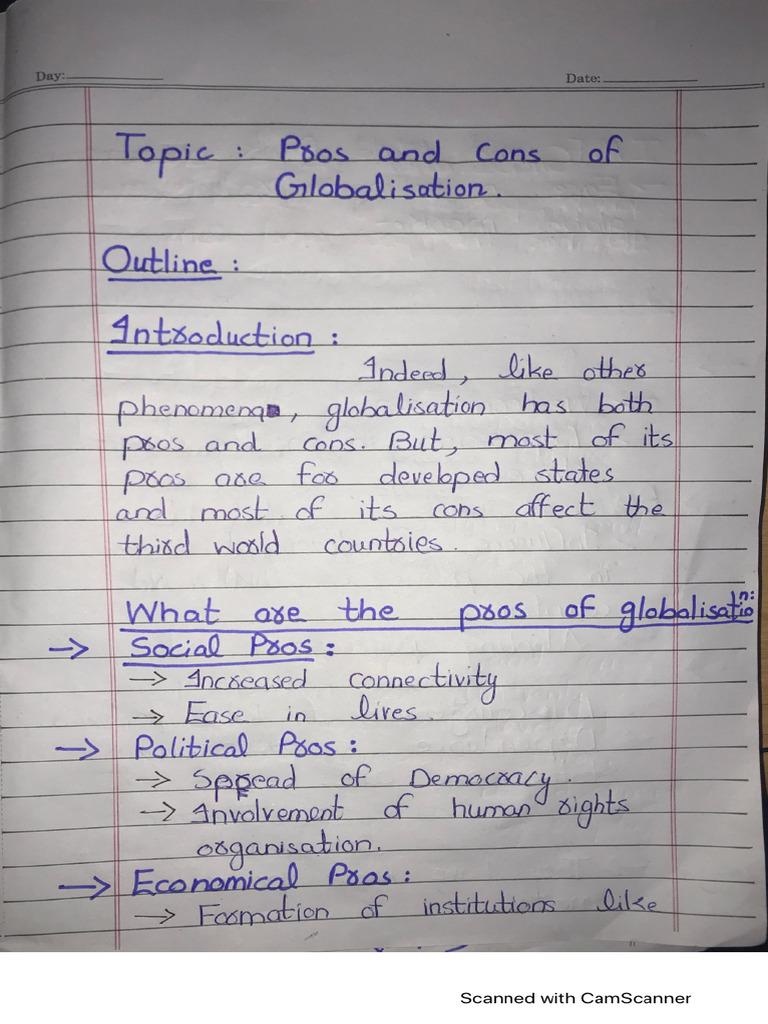 Day:
Date:
Topic : Pros and Cons of
Globalisation.
Outline :
Introduction :
Indeed, like other
phenomena, globalisation has both
pros and cons. But, most of its
pros are for developed states
and most of its cons affect the
third world countries.
What are the pros of globalisation:
→ Social Pros :
→ Increased connectivity
→ Ease in lives.
→ Political Pros :
→ Spread of Democracy.
→ Involvement of human rights
organisation.
→ Economical Pros :
→ Formation of institutions like
Scanned with CamScanner